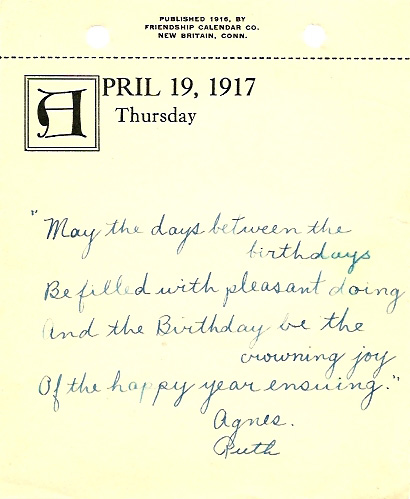 PUBLISHED 1916, BY
FRIENDSHIP CALENDAR CO.
NEW BRITAIN, CONN.
APRIL 19, 1917
Thursday
"May the days between the
birthdays
Be filled with pleasant doing
And the Birthday be the
crowning joy
Of the happy year ensuing."
Agnes.
Ruth